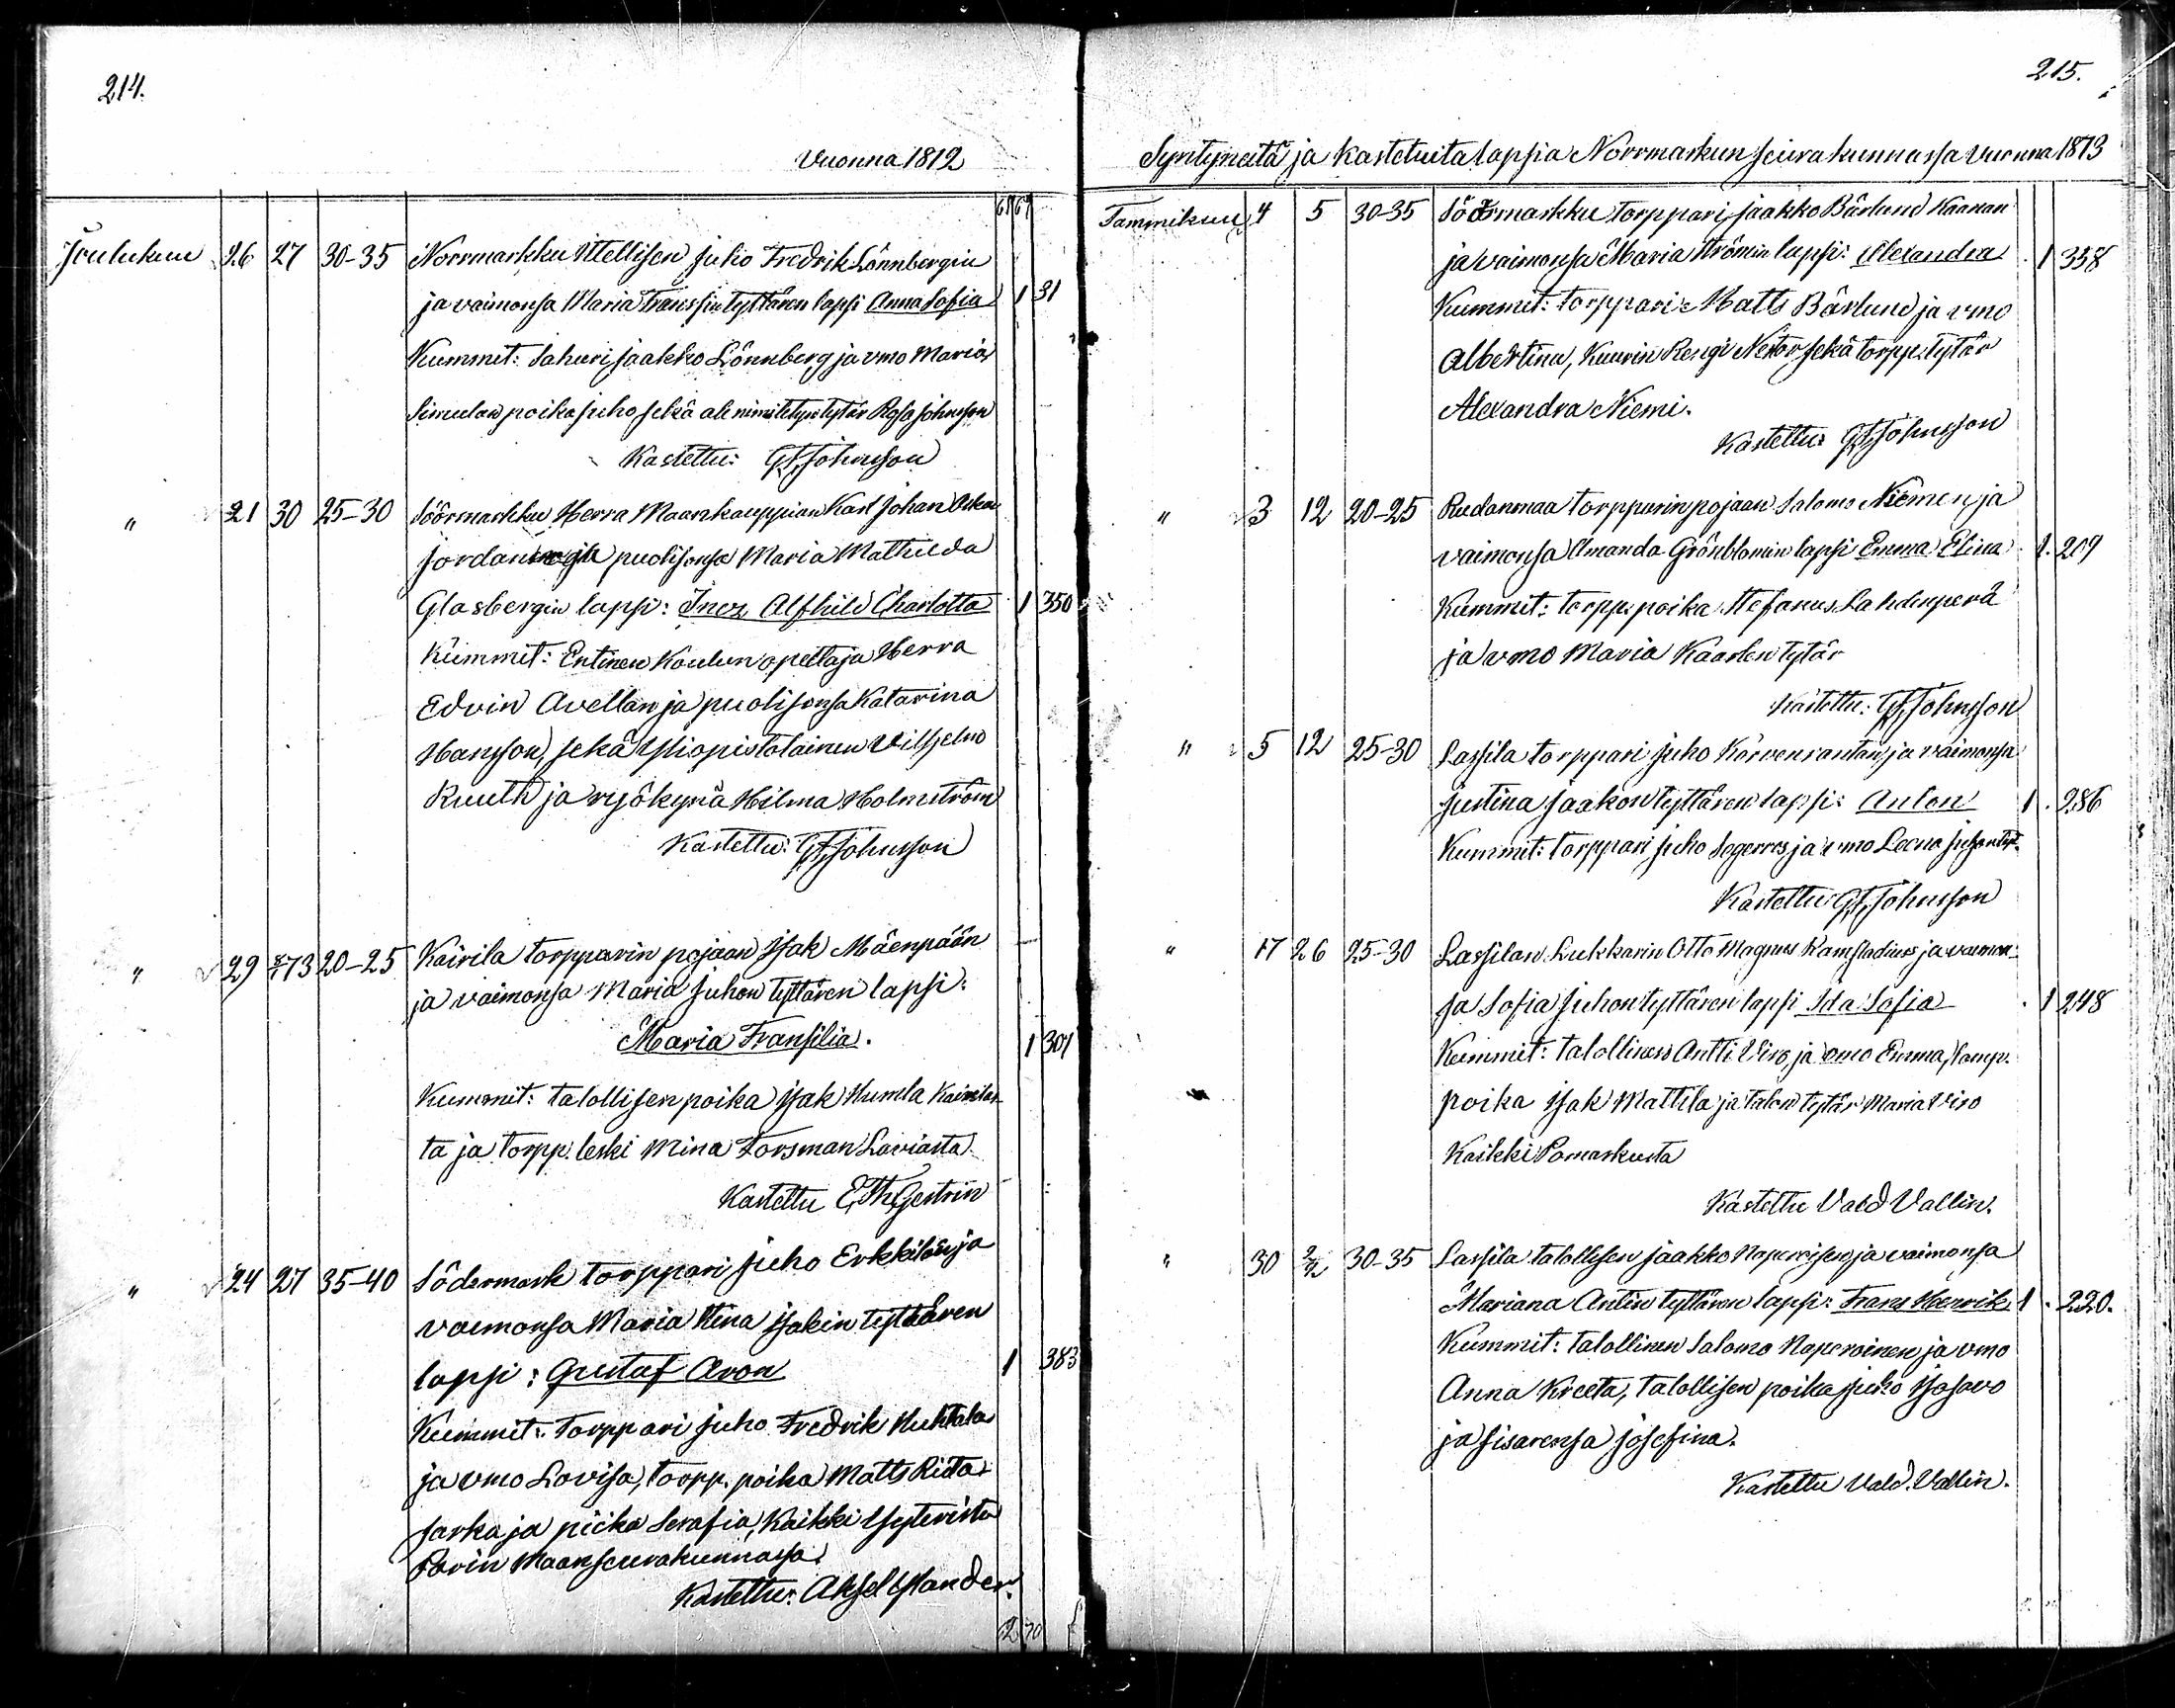 214.
Vuonna 1872
68 69
Joulukuu 26 27 30-35 Norrmarkku Itellisen Juho Fredrik Lönnbergin
ja vaimonsa Maria Franssin tyttären lapsi Anna Sofia 1 31
Kummit: Sahuri Jaakko Lönnberg ja vmo Maria
Simulan poika Juho sekä ale nimitetyn tytär Rosa Johnsson
Kastettu: G.F. Johnsson
" 21 30 25-30 Söörmarkku Herra Maankauppian Karl Johan Oskar
Jordanin ja puolisonsa Maria Mathilda
Glasbergin lapsi: Inez Alfhild Charlotta 1 350
Kummit: Entinen Koulun opettaja Herra
Edvin Avellan ja puolisonsa Katarina
Hansson, sekä Yliopistolainen Vilhelmo
Ruuth ja ryökynä Hilma Holmström
Kastettu: G.F. Johnsson
" 29 73 20-25 Kairila torpparin pojaan Isak Mäenpään
ja vaimonsa Maria Juhon tyttären lapsi:
Maria Fransilia. 1 307
Kummit: talollisen poika Isak Humla Kairilas-
ta ja torpp. leski Mina Forsman Laviasta
Kastettu E. Th. Gestrin
" 24 27 35-40 Södermark torppari Juho Erkkilän ja
vaimonsa Maria Stina Isakin tyttären
lapsi: Gustaf Aron 1 383
Kummit: Torppari Juho Fredrik Huhtala
ja vmo Lovisa, torpp. poika Matts Rieta-
sarka ja piika Serafia, Kaikki Yyteristä
Porin Maanseurakunnassa.
Kastettu: Aksel Ylander.
2 70
215.
Syntyneitä ja Kastetuita lapsia Norrmarkun seurakunnassa vuonna 1873
Tammikuu 4 5 30-35 Söörmarkku torppari Jaakko Bärlund Kaanan
ja vaimonsa Maria Strömin lapsi: Alexandra 1 358
Kummit: torppari Matts Bärlund ja vmo
Albertina, Kuurin Rengi Nestor sekä torpp. tytär
Alexandra Niemi.
Kastettu: G.F. Johnsson
" 3 12 20-25 Rudanmaa torpparin pojaan Salomo Niemen ja
vaimonsa Amanda Grönblomin lapsi Emma Elina 1. 209
Kummit: torpp. poika Stefanus Lahdenperä
ja vmo Maria Kaarlen tytär
Kastettu: G.F. Johnsson
" 5 12 25-30 Lassila torppari Juho Korvenrantan ja vaimonsa
Justina Jaakon tyttären lapsi: Anton 1. 286
Kummit: torppari Juho Segerros ja vmo Leena Juhontyt.
Kastettu G.F. Johnsson
" 17 26 25-30 Lassilan Lukkarin Otto Magnus Ramstadius ja vaimon-
sa Sofia Juhon tyttären lapsi Ida Sofia 1 248
Kummit: talollinen Antti Viro, ja vmo Emma, lamp.
poika Isak Mattila ja talon tytär Maria Viro
Kaikki Pomarkusta
Kastettu Vald Vallin.
" 30 2/2 30-35 Lassila talollisen Jaakko Noperoisen ja vaimonsa
Mariana Antin tyttären lapsi: Frans Henrik 1. 220.
Kummit: talollinen Salomo Noperoinen ja vmo
Anna Kreeta, talollisen poika Juho Isosavo
ja sisarensa Josefina.
Kastettu Vald. Vallin.